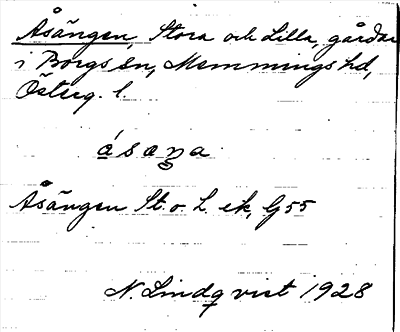 Åsängen, Stora och Lilla, gårdar
i Borgs sn, Memmings hd,
Österg. l.
åsaŋa
Åsängen St. o L. ek, G55
N. Lindqvist 1928